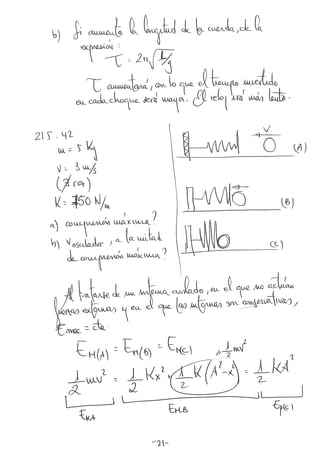 b) Si aumenta la longitud de la cuerda, de la
expresión:
T = 2π√L/g
T aumentará, con lo que el tiempo invertido
en cada choque será mayor. El reloj irá más lento.
215.42
m = 5 Kg
V = 3 m/s
K = 750 N/m
a) compresión máxima?
b) Voscilador, a la mitad
de compresión máxima?
V
(A)
(B)
(C)
Al tratarse de un sistema aislado, en el que no actúan
fuerzas externas y en el que las internas son conservativas,
Emec = cte.
EM(A) = EM(B) = EM(C)
1/2 mv²
1/2 mv² = 1/2 Kx² + 1/2 K(A²-x²) = 1/2 KA²
EKA EMB Ep(C)
-21-